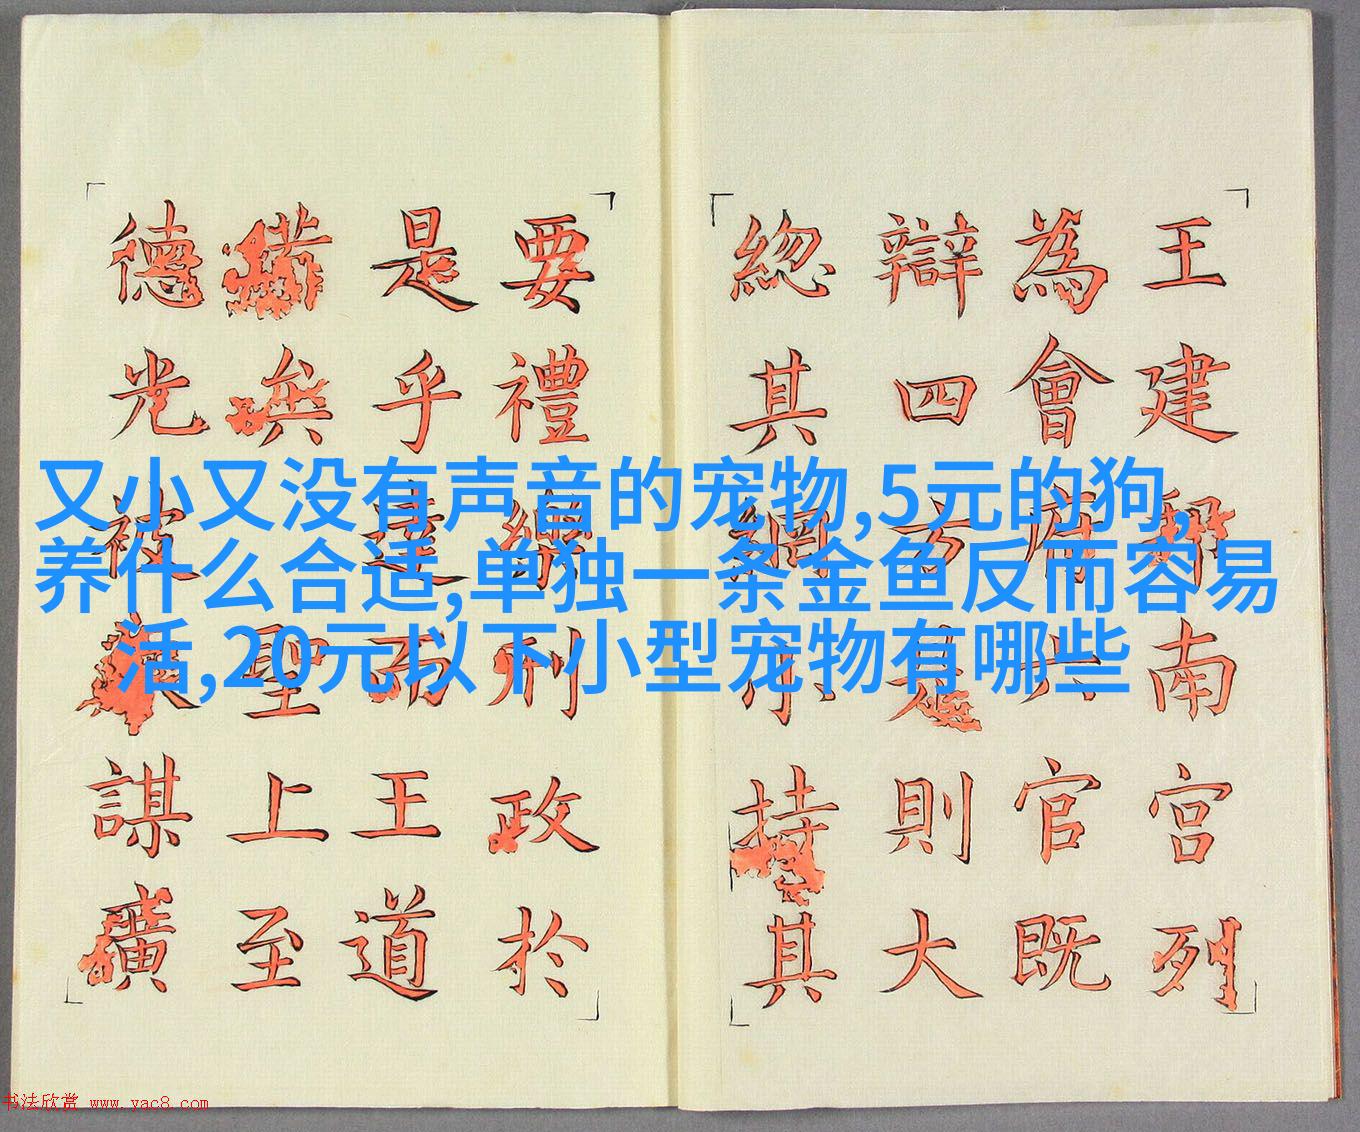 王建南宮列
為會府六官既
辯四方是則大
總其綱小持其
要禮樂刑政於
是乎達而王道
備矣聖上至
德光被謀廣
又小又没有声音的宠物,5元的狗,
养什么合适,单独一条金鱼反而容易
活,20元以下小型宠物有哪些
书法欣赏 www.yac8.com